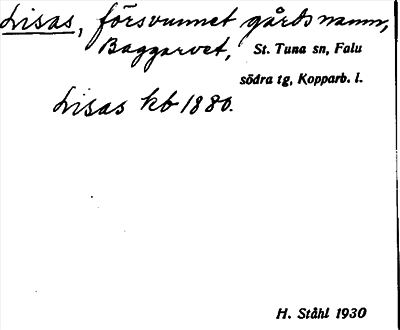 Lisas, försvunnet gårdsnamn,
Baggarvet, St. Tuna sn, Falu
södra tg, Kopparb. l.
Lisas kb 1880.
H. Ståhl 1930